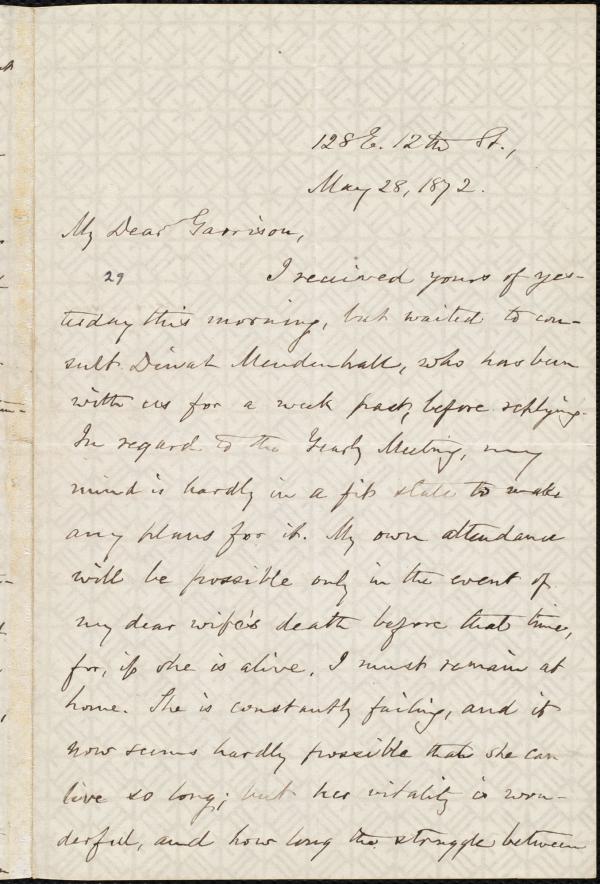 128 E. 12th St.,
May 28, 1872.
My Dear Garrison,
29 I received yours of yes-
terday this morning, but waited to con-
sult Dinah Mendenhall, who has been
with us for a week past, before replying.
In regard to the Yearly Meeting, my
mind is hardly in a fit state to make
any plans for it. My own attendance
will be possible only in the event of
my dear wife's death before that time,
for, if she is alive, I must remain at
home. She is constantly failing, and it
now seems hardly possible that she can
live so long; but her vitality is won-
derful, and how long the struggle between